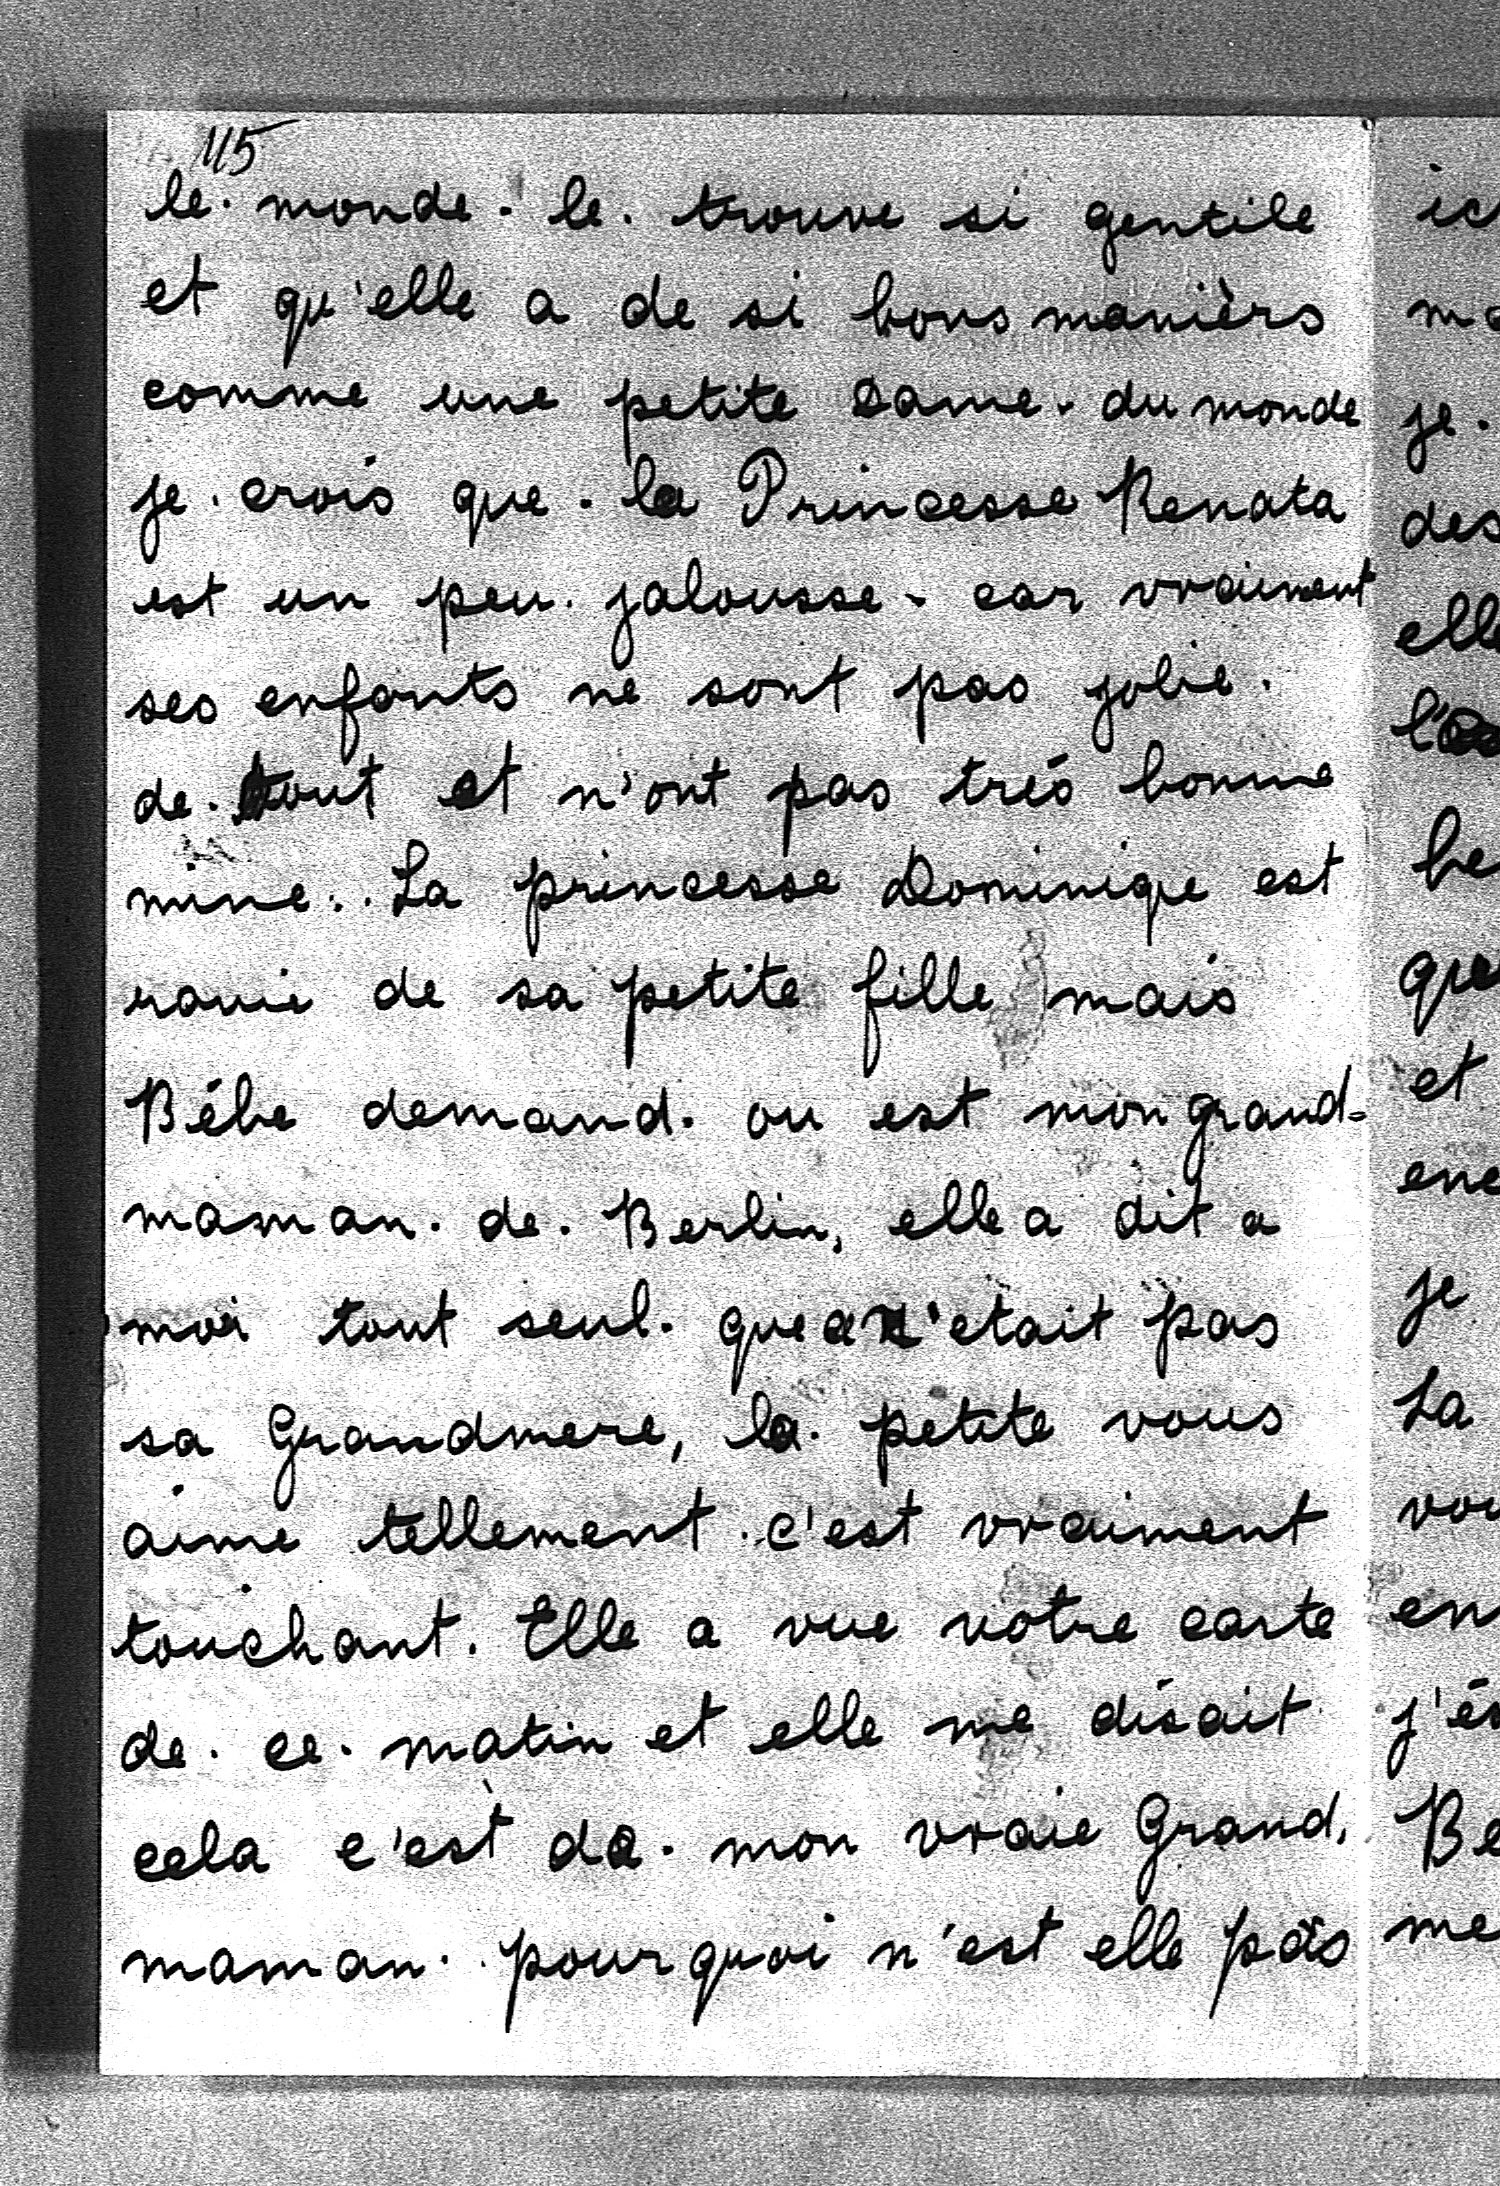 115
le. monde. le. trouve si gentile
et qu'elle a de si bons manièrs
comme une petite dame. du monde
je. crois que. la Princesse Renata
est un peu. jalousse. car vraiment
ses enfants ne sont pas jolie.
de. tout et n'ont pas trés bonne
mine.. La princesse Dominique est
ravie de sa petite fille mais
Bébe demand. ou est mon grand-
maman. de. Berlin, elle a dit a
moi tout seul. que n'etait pas
sa Grandmere, la. petite vous
aime tellement. c'est vraiment
touchant. Elle a vue votre carte
de. ce. matin et elle me disait
cela c'èst de. mon vraie Grand.
maman.. pourquoi n'est elle pas
ich
je.
des
elle
et
je
La